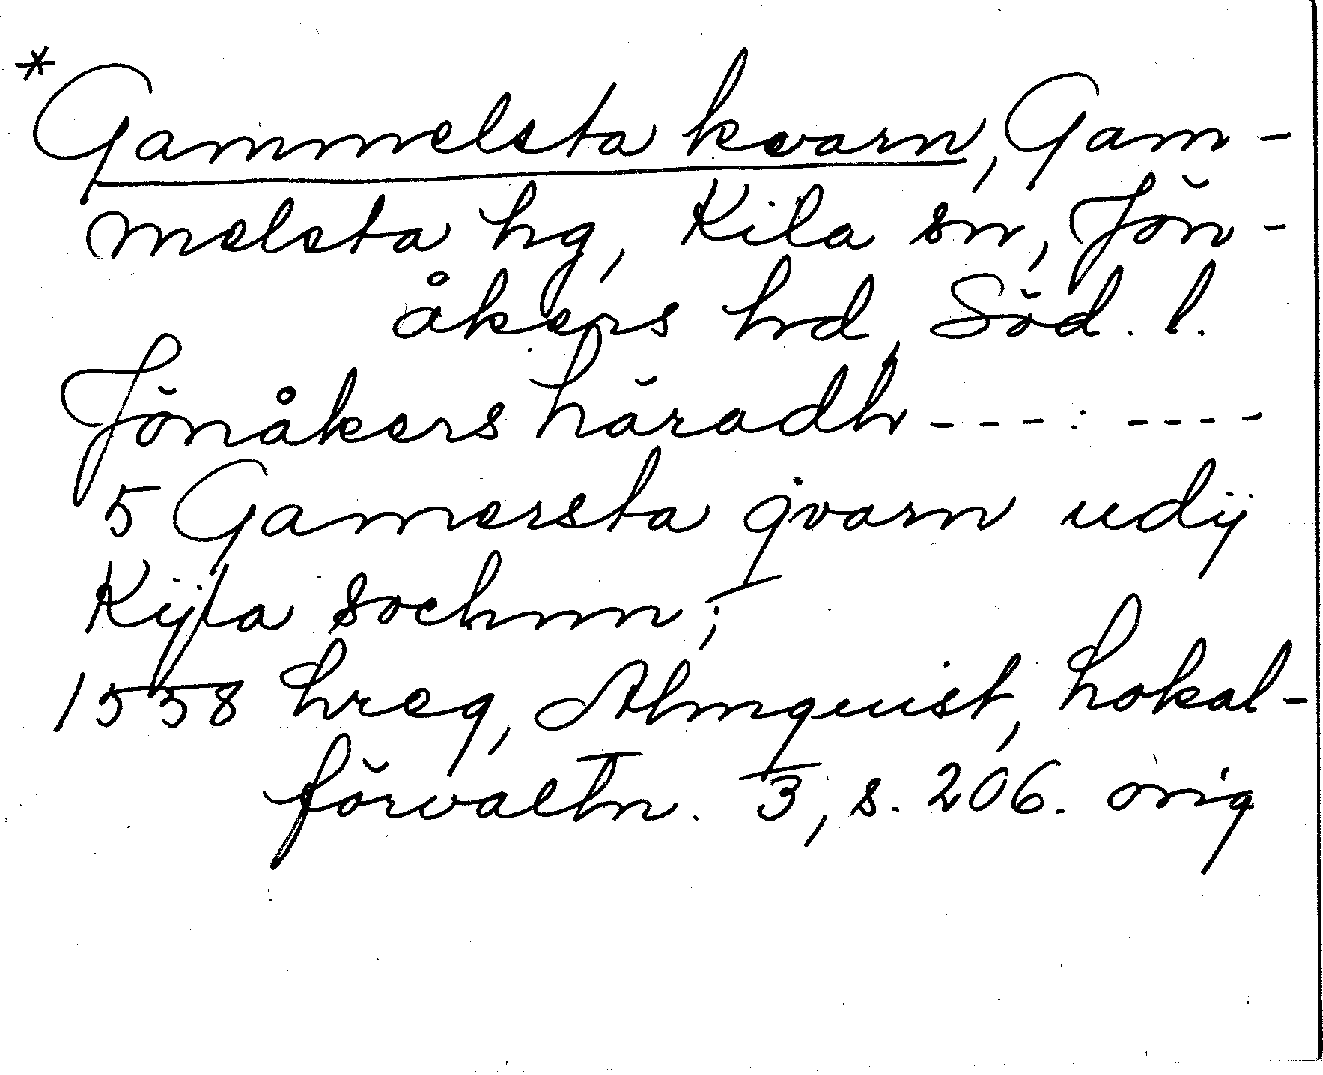 * Gammelsta kvarn, Gam-
melsta hg, Kila sn, Jön-
åkers hd, Söd. l.
Jönåkers häradh --- : ----
5 Gamersta qvarn udij
Kijla sochnn;
1558 hreg, Almquist, Lokal-
förvaltn. 3, s. 206. orig